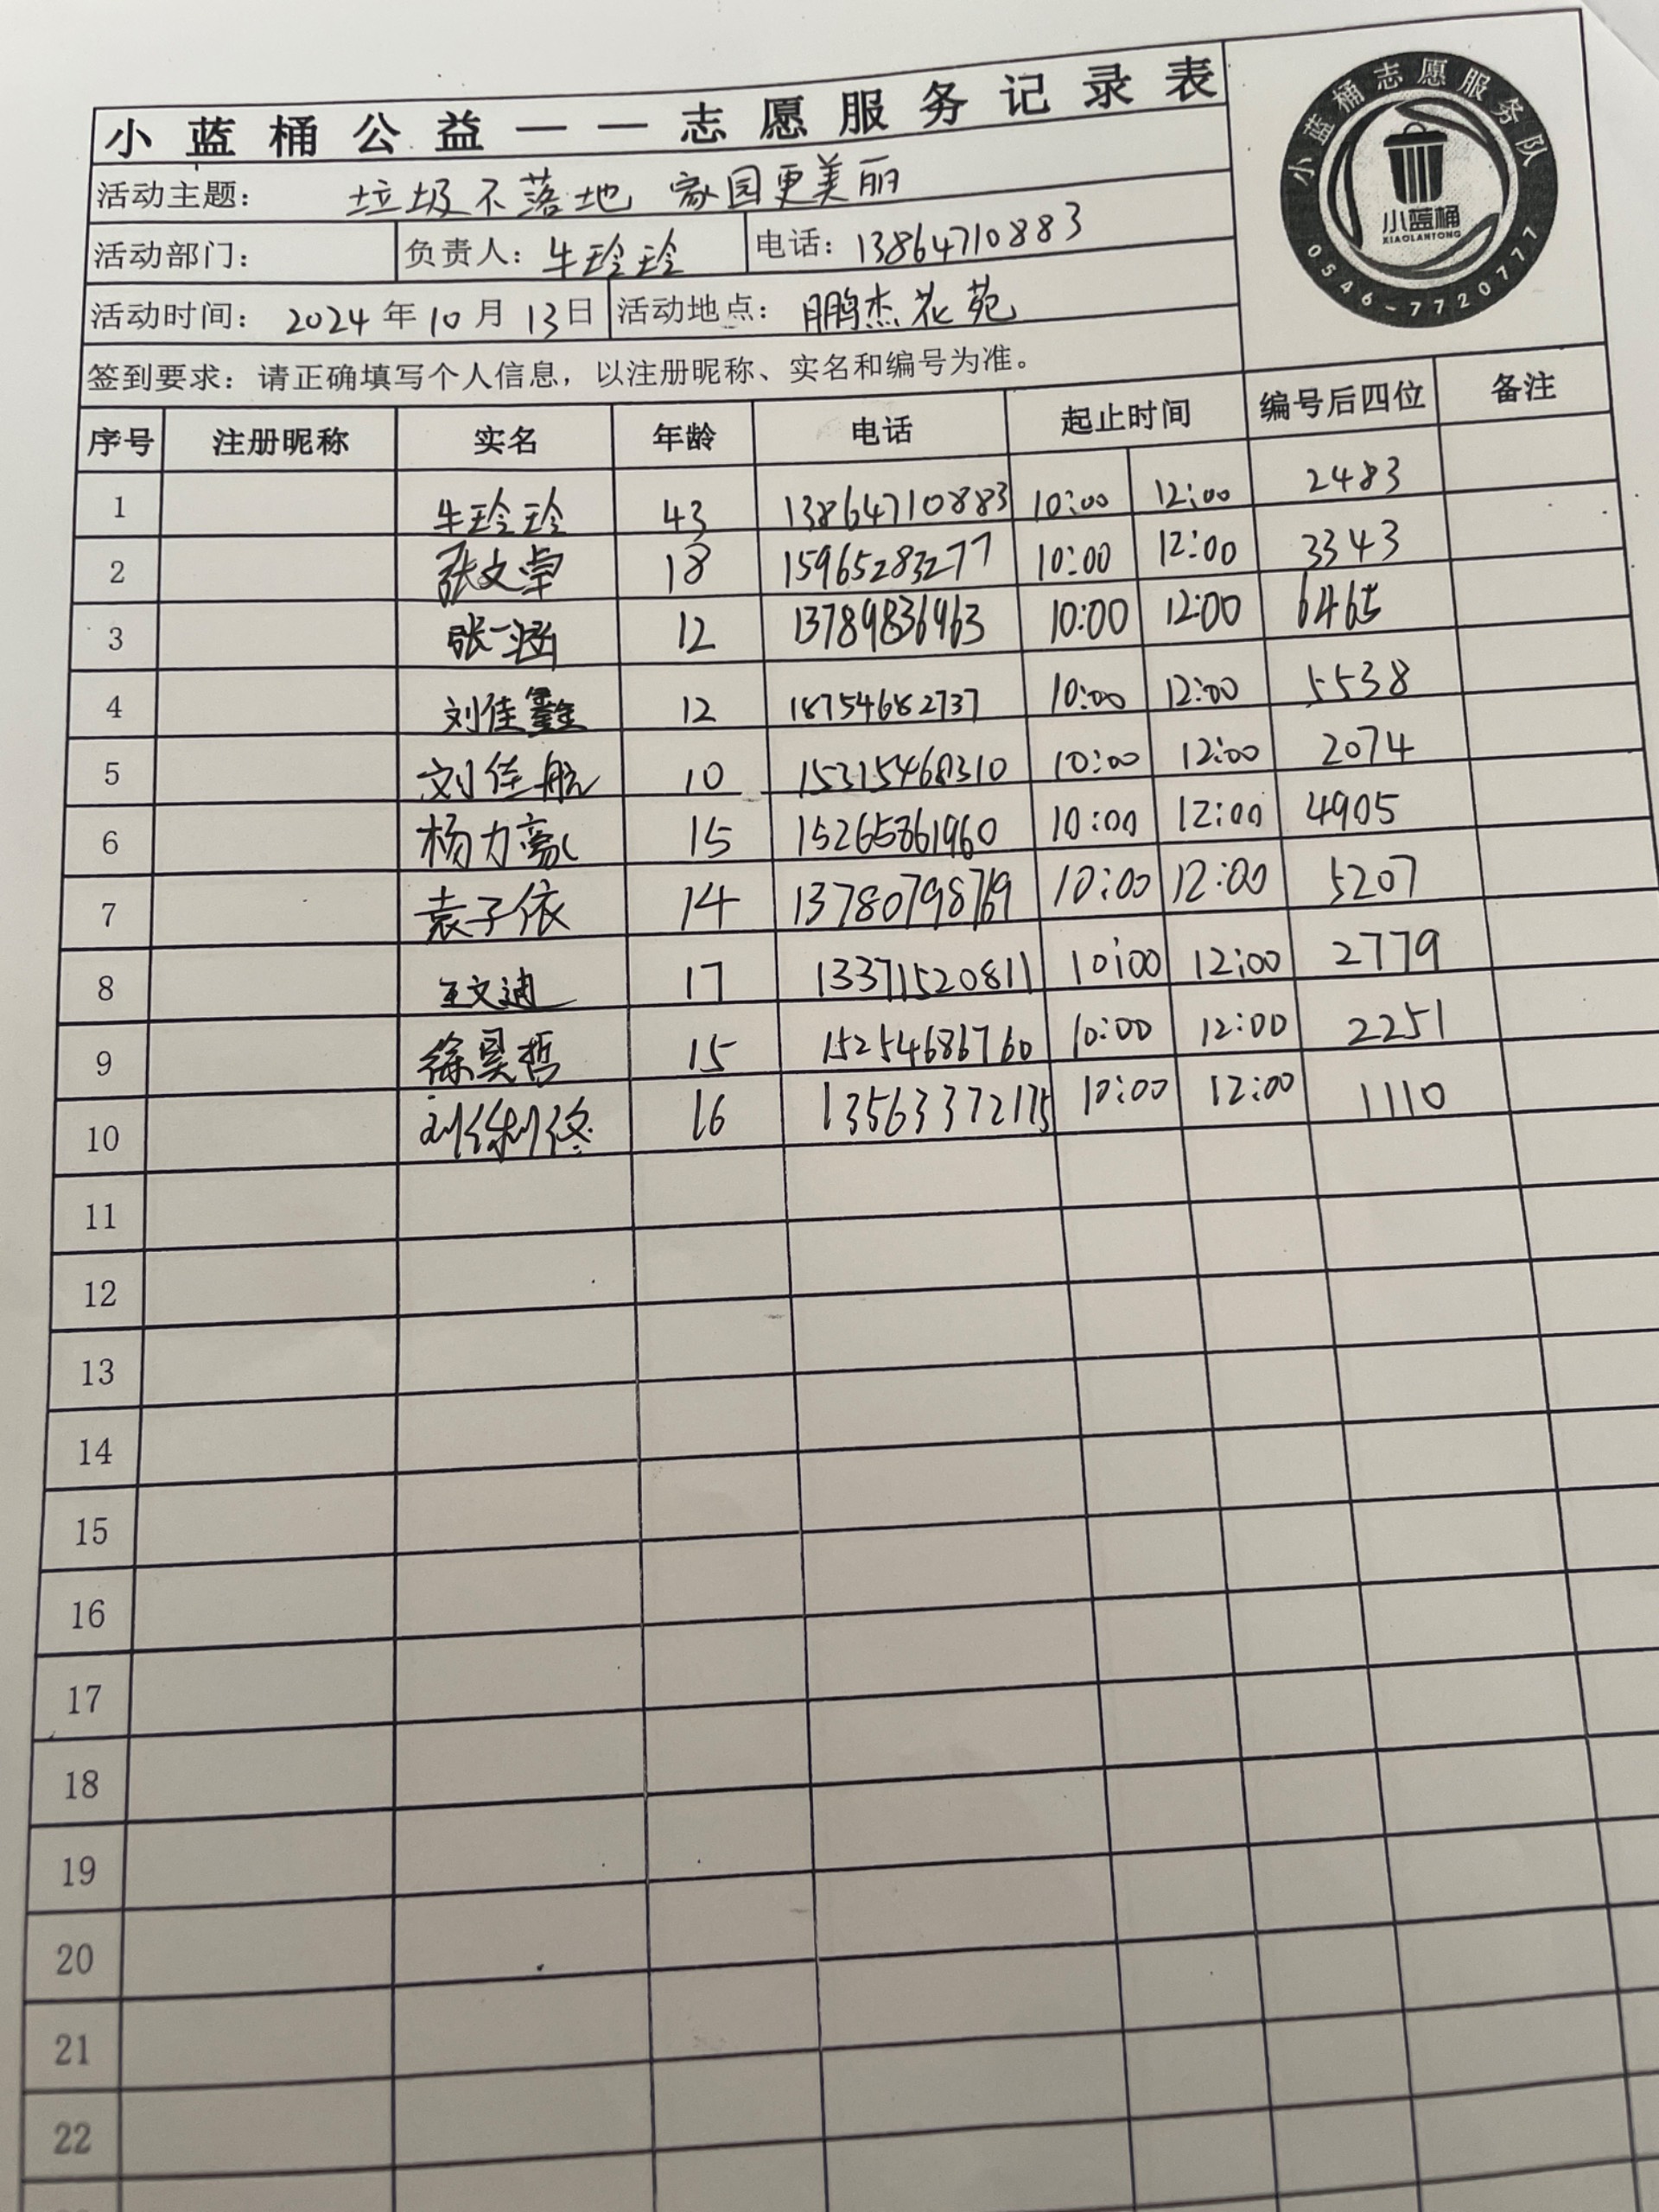 小蓝桶公益——志愿服务记录表
小蓝桶志愿服务队
小蓝桶
XIAOLANTONG
0546-7720777
活动主题： 垃圾不落地 家园更美丽
活动部门： 负责人：牛玲玲 电话：13864710883
活动时间：2024年10月13日 活动地点：鹏杰花苑
签到要求：请正确填写个人信息，以注册昵称、实名和编号为准。
序号 注册昵称 实名 年龄 电话 起止时间 编号后四位 备注
1 牛玲玲 43 13864710883 10:00 12:00 2483
2 张文卓 18 15965283277 10:00 12:00 3343
3 张一涵 12 13789836963 10:00 12:00 6465
4 刘佳鑫 12 18754682737 10:00 12:00 5538
5 刘佳航 10 15315468310 10:00 12:00 2074
6 杨力豪 15 15265861960 10:00 12:00 4905
7 袁子依 14 13780798769 10:00 12:00 5207
8 王文迪 17 13371520811 10:00 12:00 2779
9 徐昊哲 15 15254686760 10:00 12:00 2251
10 16 13563372175 10:00 12:00 1110
11
12
13
14
15
16
17
18
19
20
21
22